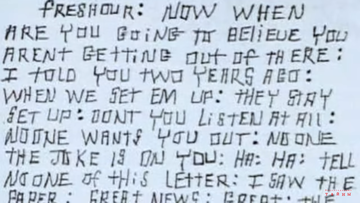 FRESHOUR: NOW WHEN
ARE YOU GOING TO BELIEVE YOU
ARENT GETTING OUT OF THERE:
I TOLD YOU TWO YEARS AGO:
WHEN WE SET EM UP: THEY STAY
SET UP: DONT YOU LISTEN AT ALL:
NOONE WANTS YOU OUT: NO ONE
THE JOKE IS ON YOU: HA: HA: TELL
NO ONE OF THIS LETTER: I SAW THE
PAPER: GREAT NEWS: GREAT: THE